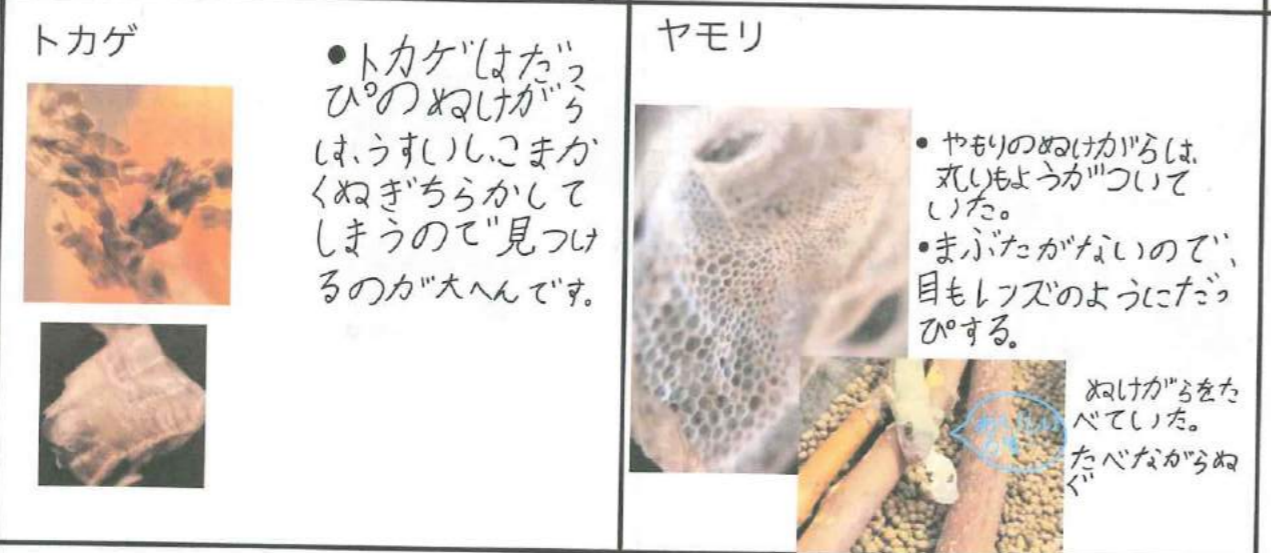 トカゲ
•トカゲはだっ
ぴのぬけがら
は、うすいし、こまか
くぬぎちらかして
しまうので見つけ
るのが大へんです。
ヤモリ
•やもりのぬけがらは、
丸いもようがついて
いた。
•まぶたがないので、
目もレンズのようにだっ
ぴする。
ぬけがらをた
べていた。
たべながらぬ
ぐ